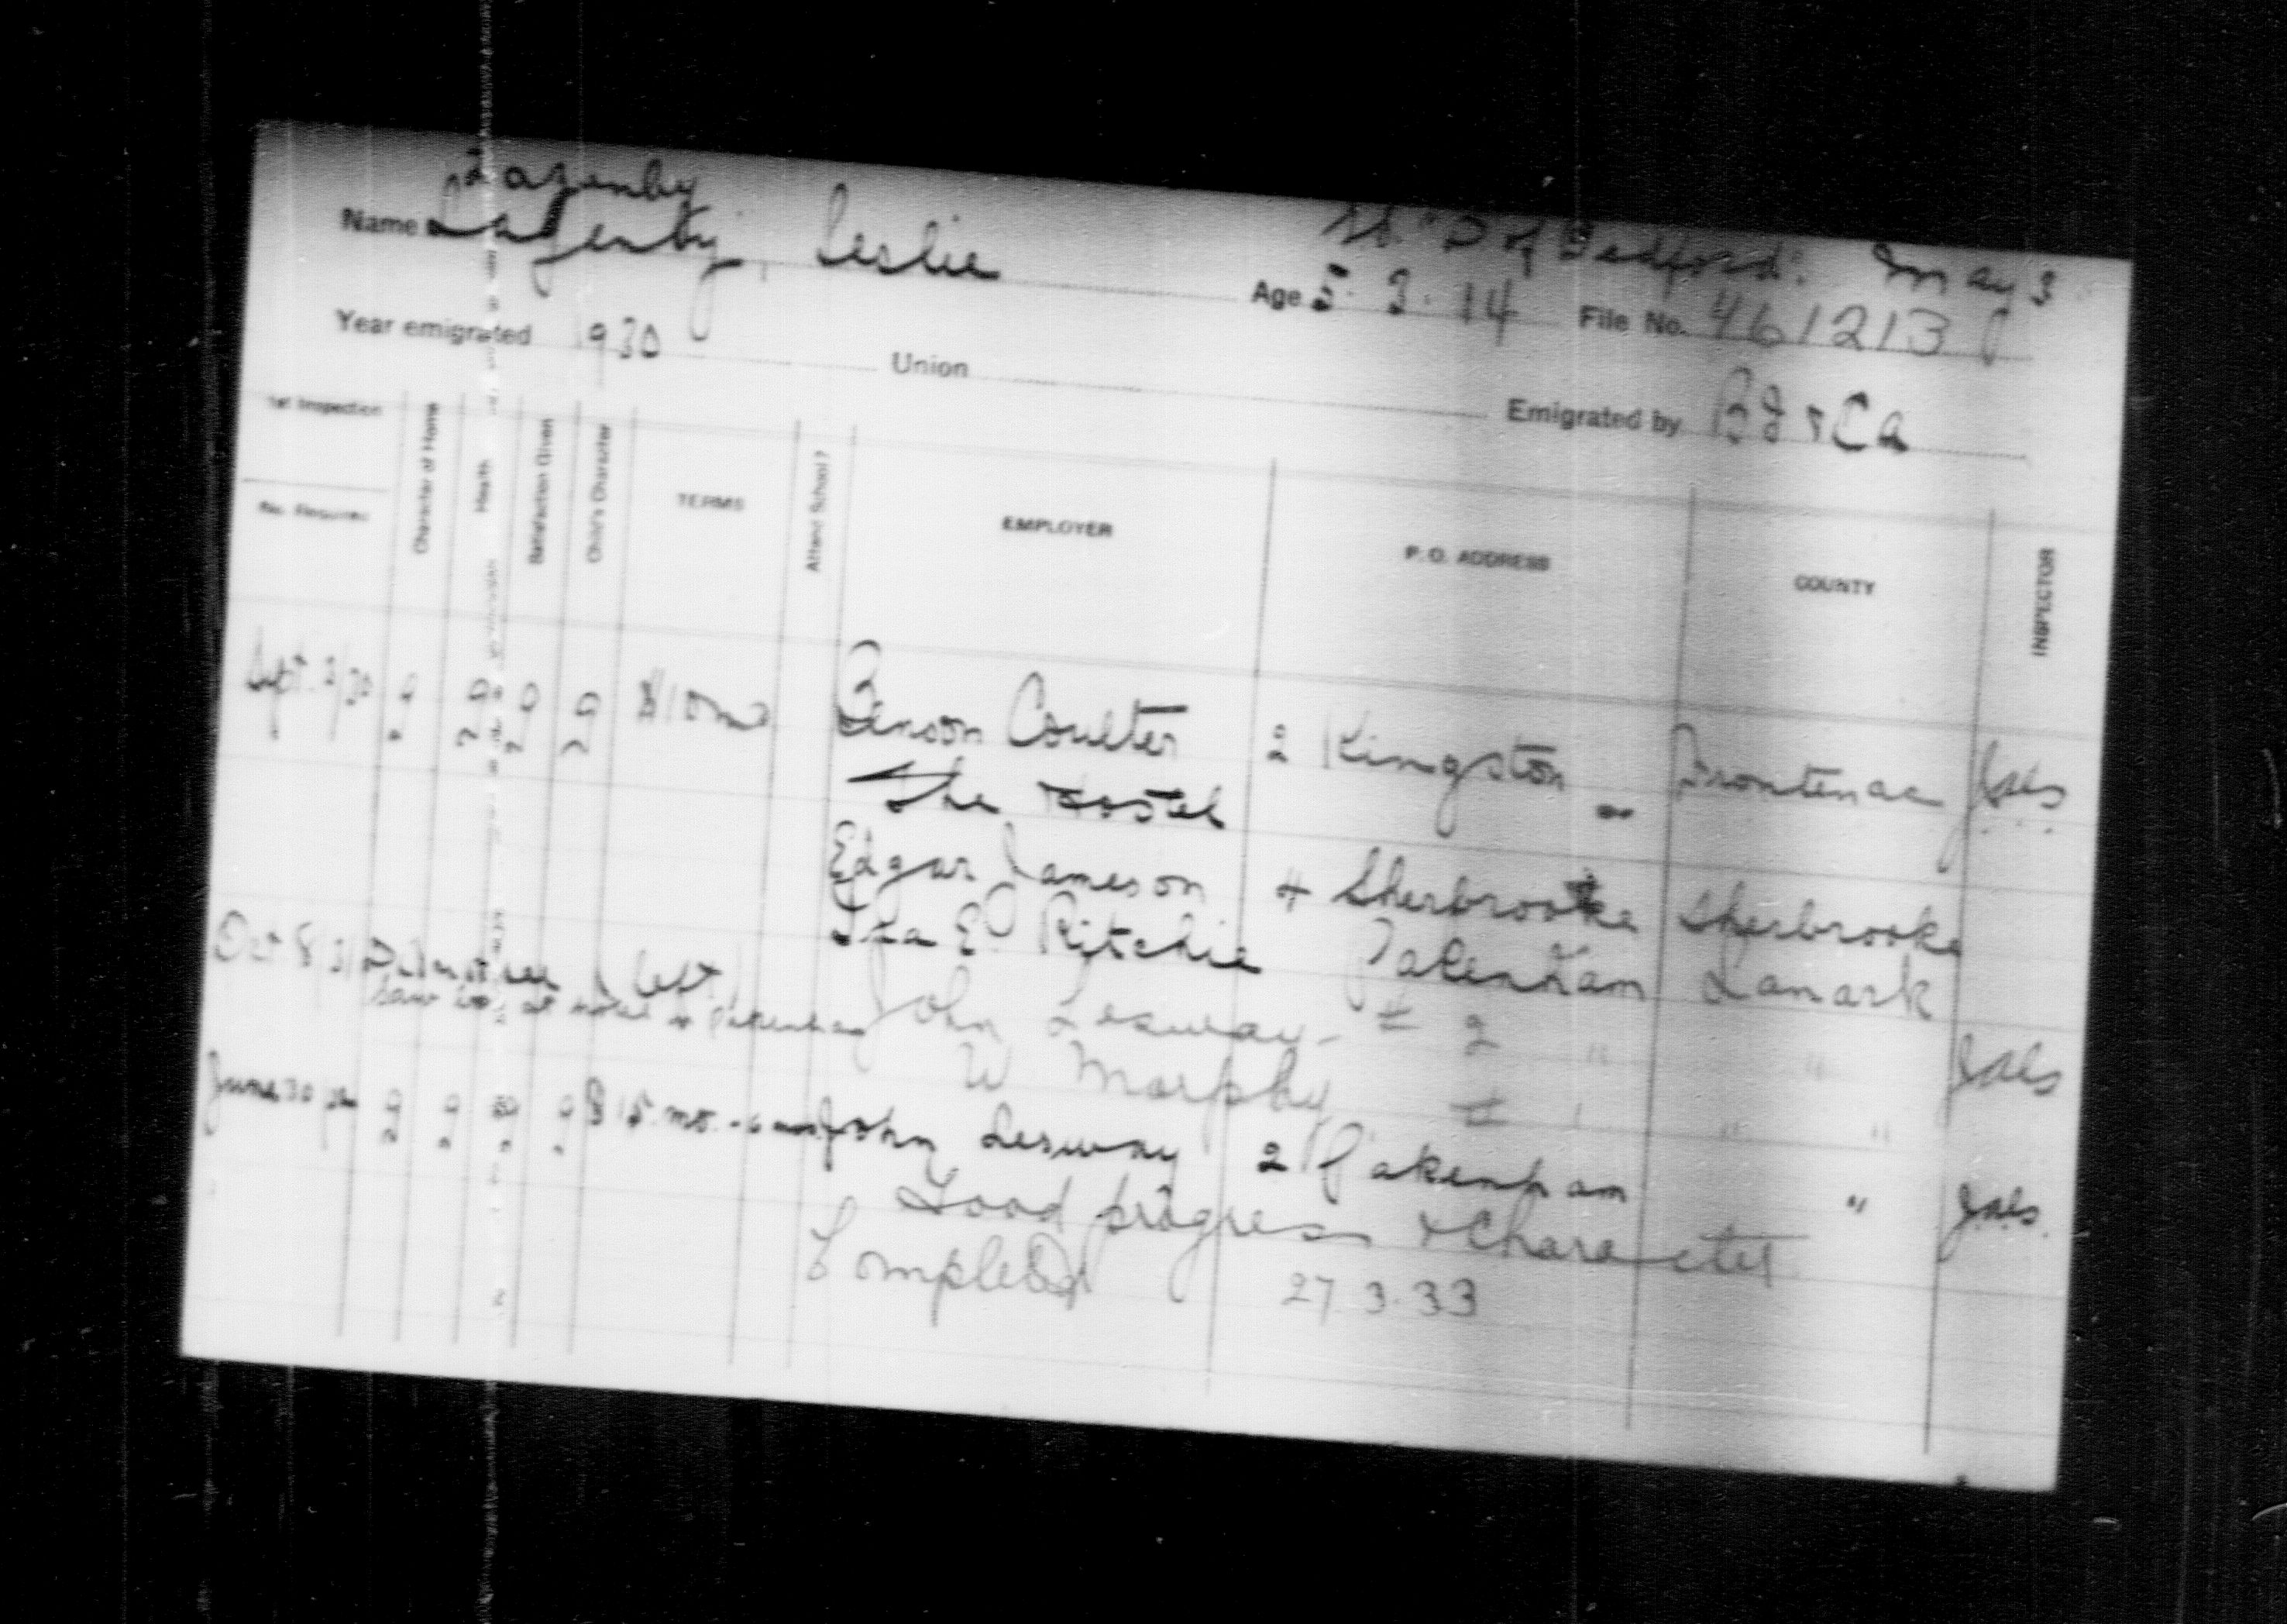 Lazenby
Name Lazenby, Leslie
SS. "D of Bedford". May 3
Age 5. 3. 14 File No. 461213
Year emigrated 1930 Union Emigrated by BI & CA
1st Inspection
No. Required
Character of Home
Health
Satisfaction Given
Child's Character
TERMS
Attend School?
EMPLOYER
P. O. ADDRESS
COUNTY
INSPECTOR
Sept. 2/30 g g g g $10 mo Benson Coulter 2 Kingston Frontenac
The Hostel "
Edgar Jameson 4 Sherbrooke Sherbrooke
Ira E. Ritchie Pakenham Lanark
Oct 8/31 left John Lesway - # 2 " "
saw boy at hotel in Pakenham
W Morphy # 1 " "
June 30 g g g g $15. mo. John Lesway 2 Pakenham "
Good progress & Character
Completed 27. 3. 33